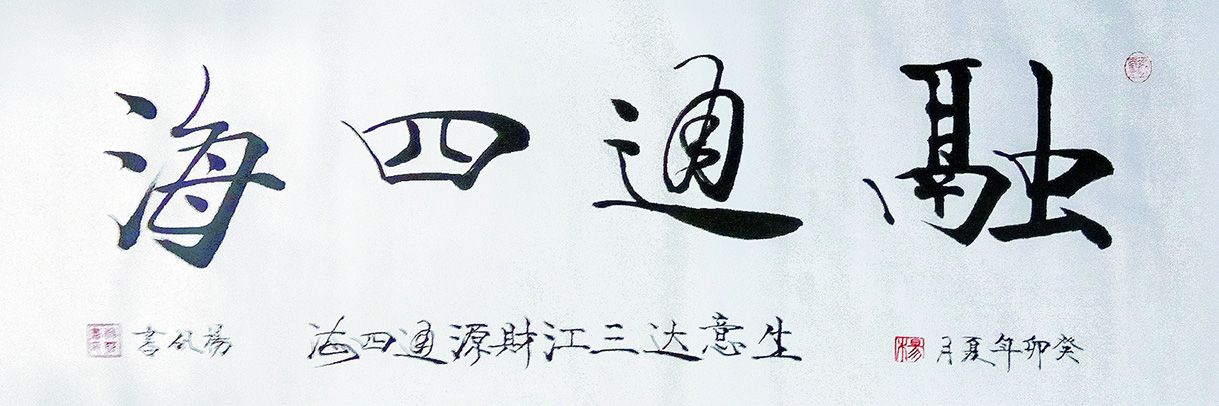 融通四海
癸卯年夏月
楊
生意达三江財源通四海
書